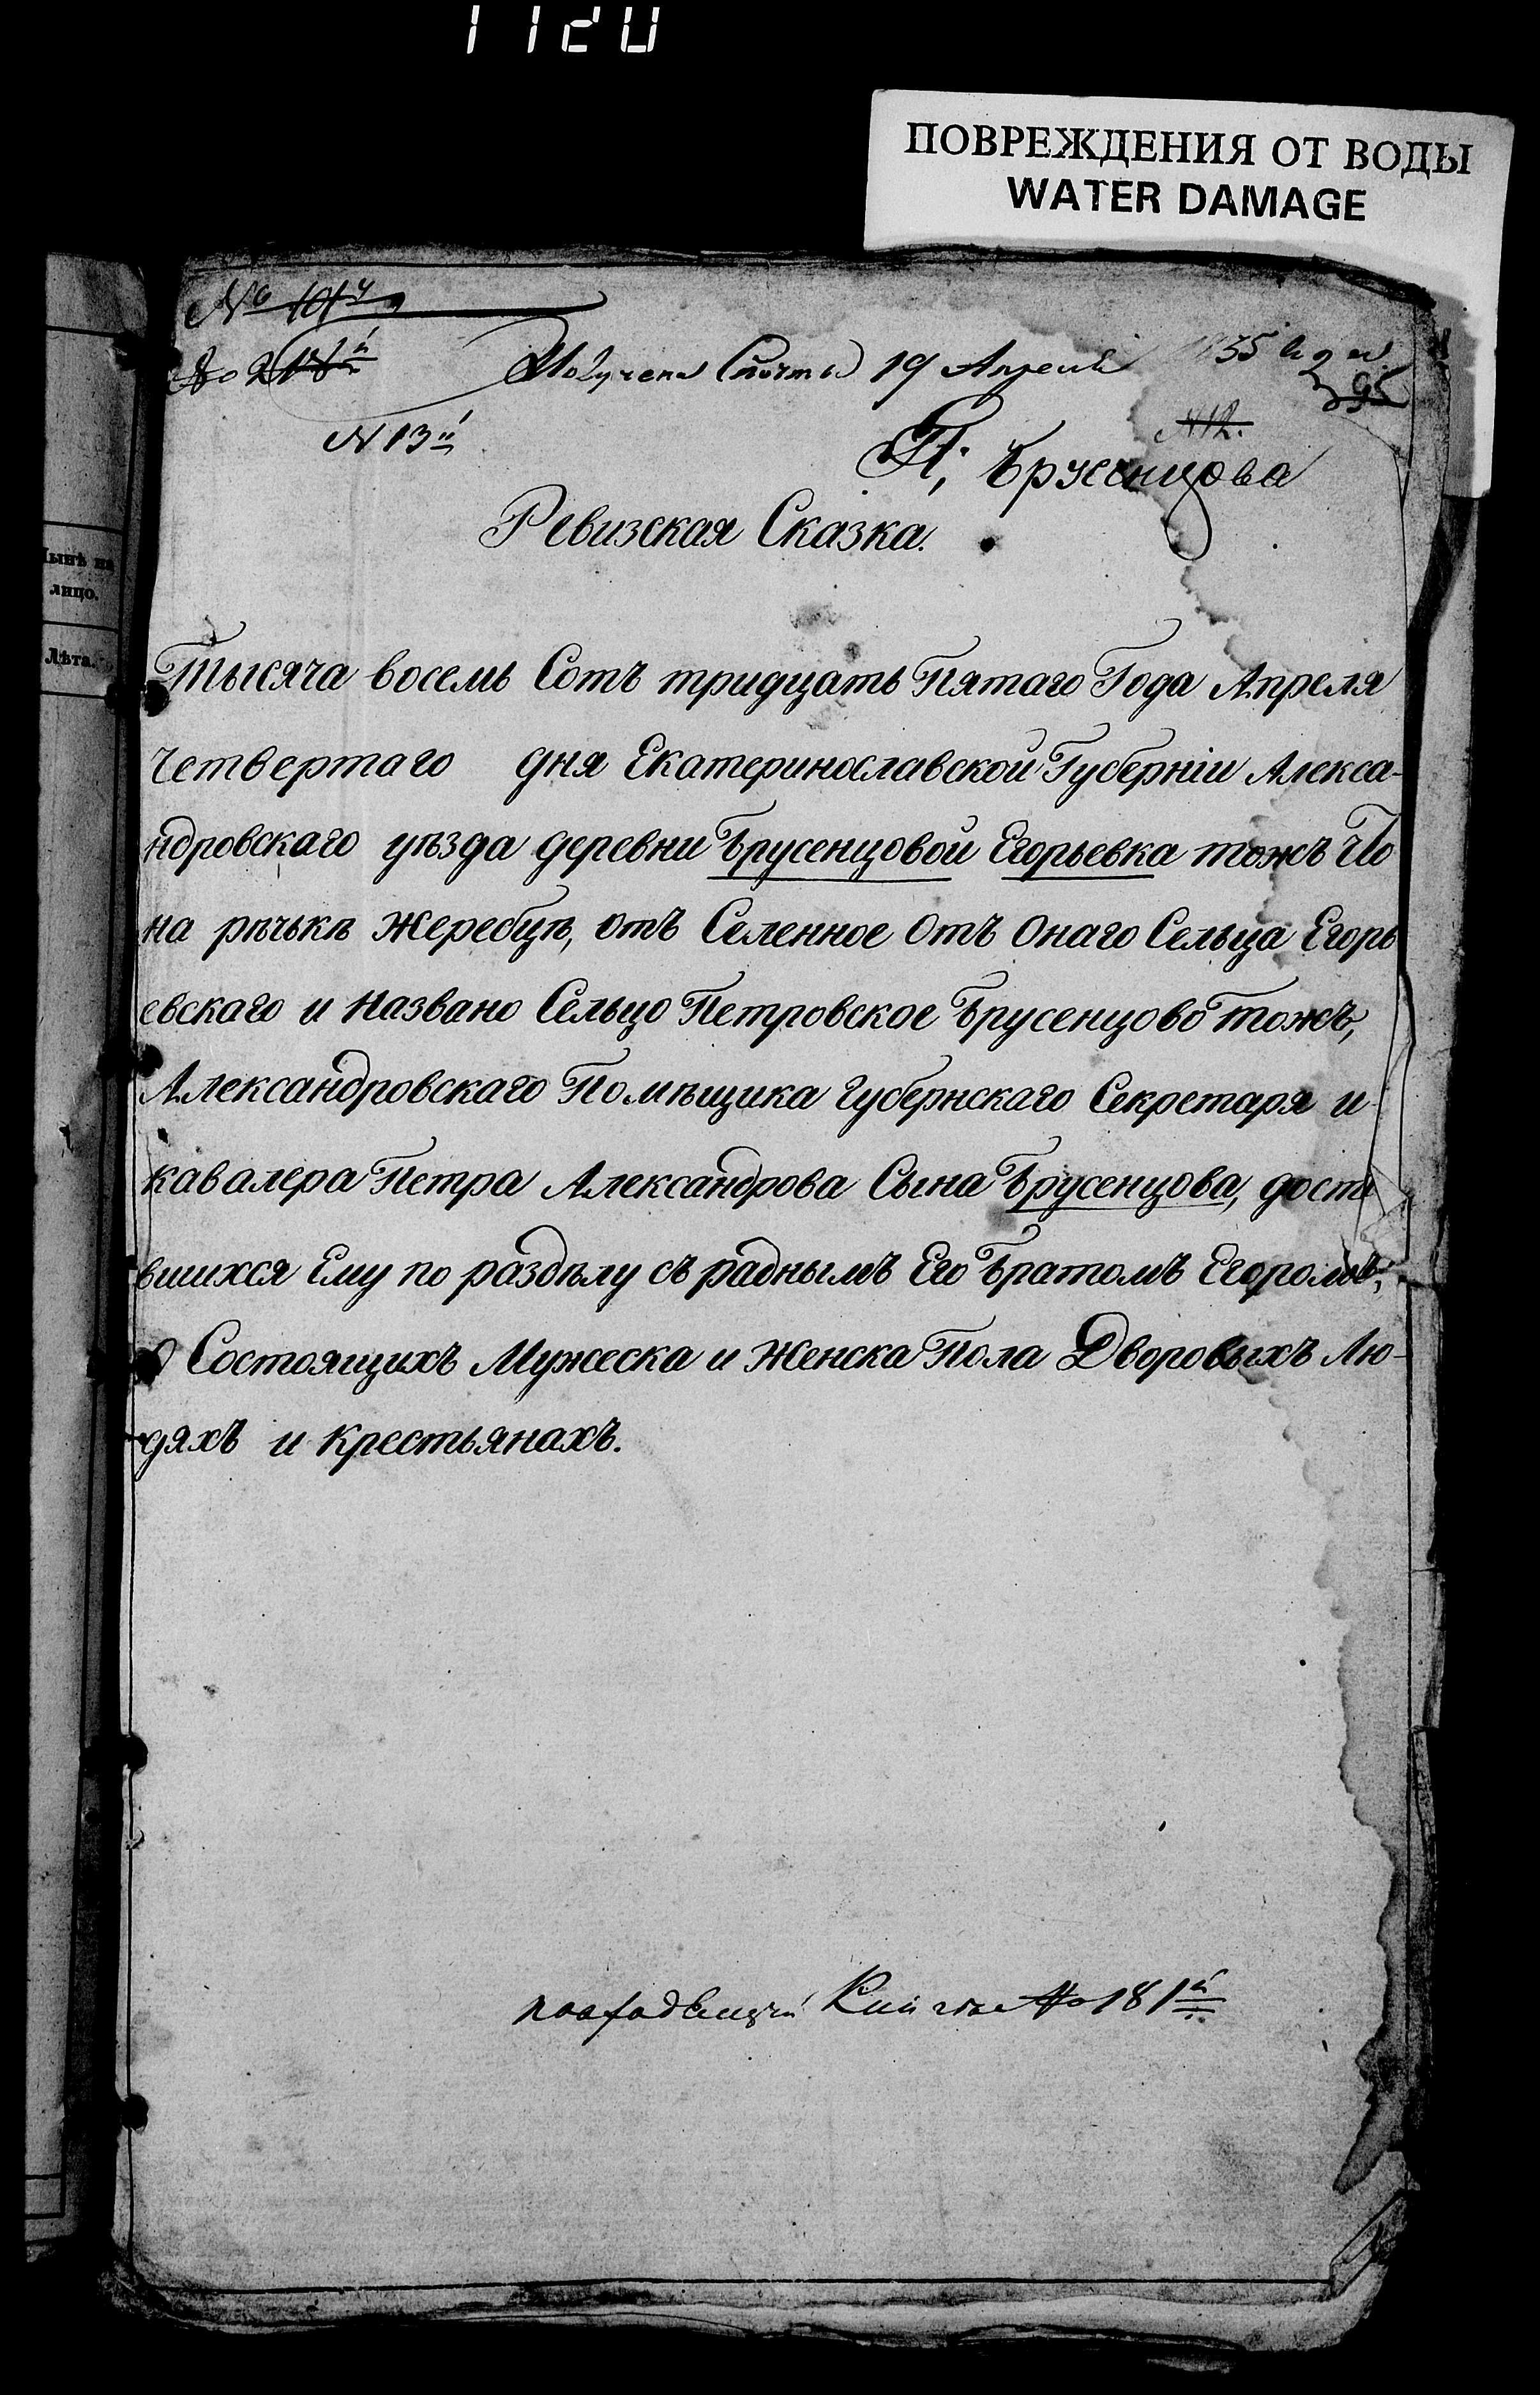 1120
ПОВРЕЖДЕНИЯ ОТ ВОДЫ
WATER DAMAGE
№ 101й
Получена Спочты 19 Апреля 1835 года
95
№ 12.
N 13й
П; Брусенцова
Ревизская Сказка.
Нынѣ на
лицо.
Лѣта.
Тысяча восемь Сотъ тридцать Пятаго Года Апреля
четвертаго дня Екатеринославской Губерніи Алекса-
ндровскаго уѣзда деревни Брусенцовой Егорьевка тожъ
на рѣчькѣ Жеребцѣ, отъ Селенное Отъ Онаго Сельца Егорь
евскаго и Названо Сельцо Петровское Брусенцово тожъ,
Александровскаго Помѣщика Губернскаго Секретаря и
кавалера Петра Александрова Сына Брусенцова, доста
вшихся Ему по раздѣлу съ раднымъ Его Братомъ Егоромъ,
О Состоящихъ Мужеска и Женска Пола Дворовыхъ Лю-
дяхъ и Крестьянахъ.
Книге № 181й